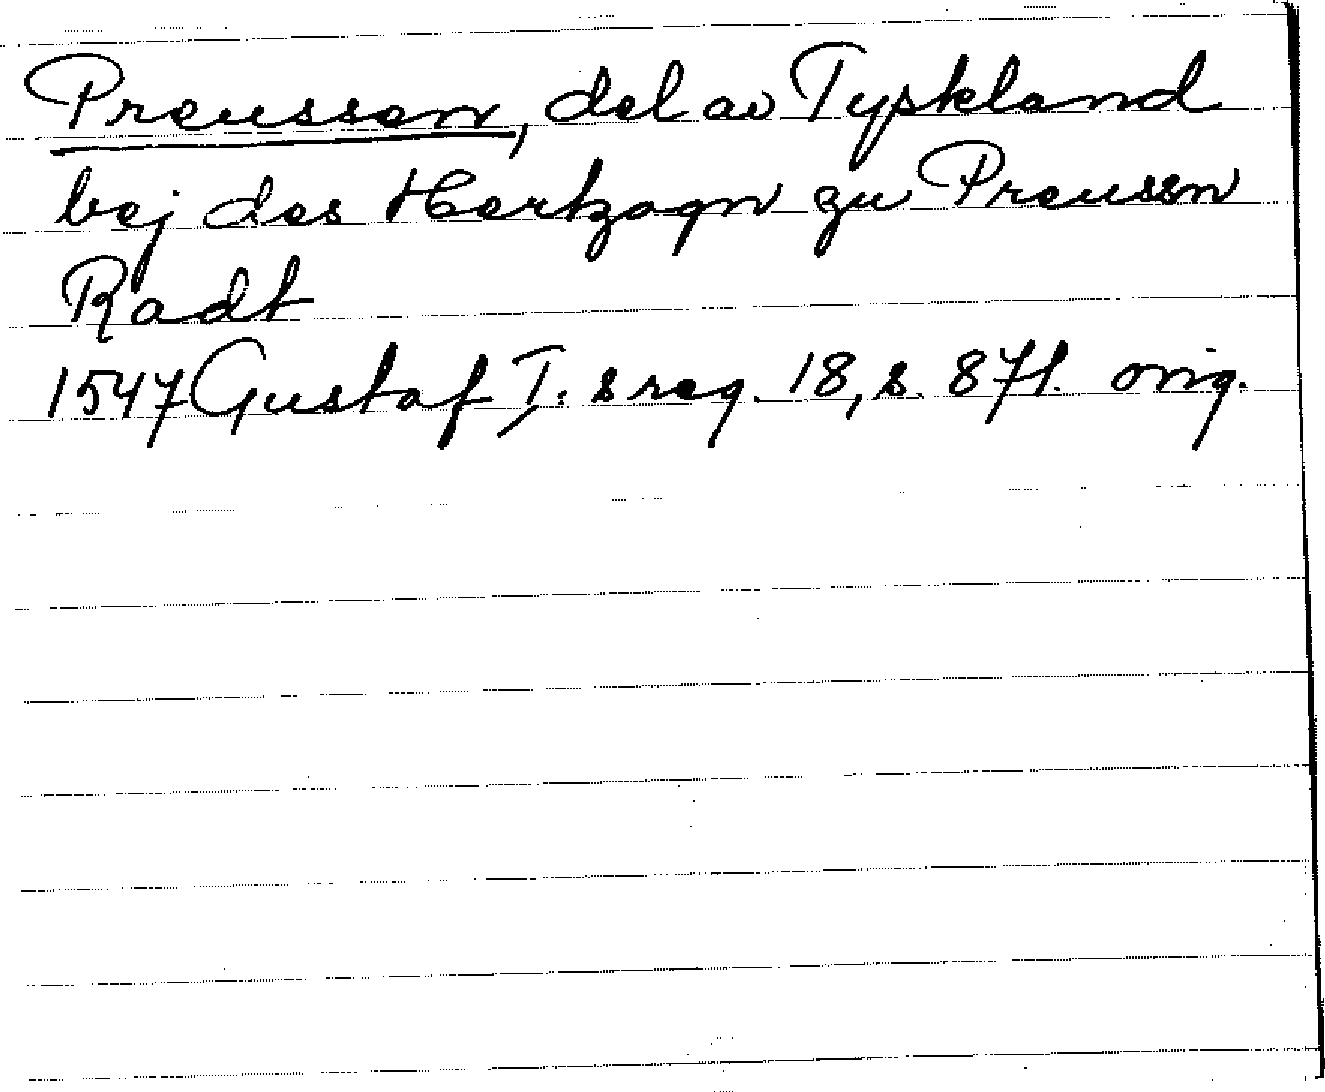 Preussen, del av Tyskland
bej des Hertzogn zu Preussn
Radt
1547 Gustaf I:s reg. 18, s. 871. orig.